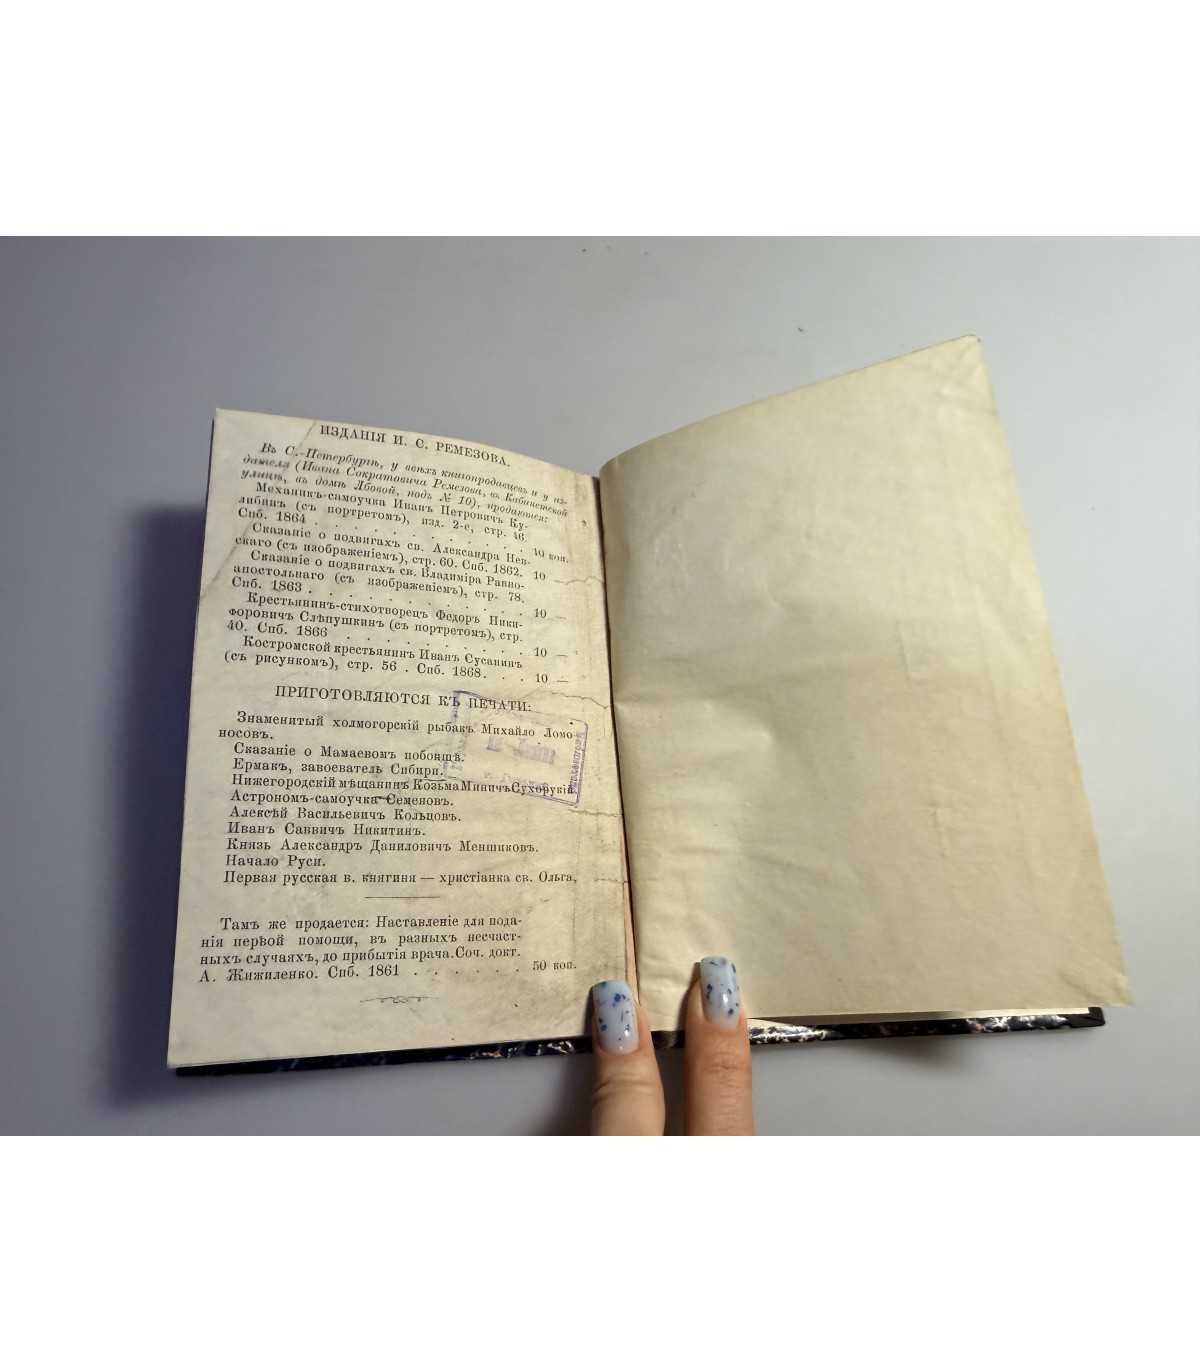 ИЗДАНІЯ И. С. РЕМЕЗОВА.
Въ С.-Петербургѣ, у всѣхъ книгопродавцевъ и у из-
дателя (Ивана Сократовича Ремезова, въ Кабинетской
улицѣ, въ домѣ Лбовой, подъ № 10), продаются:
Механикъ-самоучка Иванъ Петровичъ Ку-
либинъ (съ портретомъ), изд. 2-е, стр. 46.
Спб. 1864 . . . . . . . . . . . 10 коп.
Сказаніе о подвигахъ св. Александра Нев-
скаго (съ изображеніемъ), стр. 60. Спб. 1862. 10 —
Сказаніе о подвигахъ св. Владиміра Равно-
апостольнаго (съ изображеніемъ), стр. 78.
Спб. 1863 . . . . . . . . . . . 10 —
Крестьянинъ-стихотворецъ Ѳедоръ Ники-
форовичъ Слѣпушкинъ (съ портретомъ), стр.
40. Спб. 1866 . . . . . . . . . . 10 —
Костромской крестьянинъ Иванъ Сусанинъ
(съ рисункомъ), стр. 56 . Спб. 1868. . . 10 —
ПРИГОТОВЛЯЮТСЯ КЪ ПЕЧАТИ:
Знаменитый холмогорскій рыбакъ Михайло Ломо
носовъ.
Сказаніе о Мамаевомъ побоищѣ.
Ермакъ, завоеватель Сибири.
Нижегородскій мѣщанинъ Козьма Миничъ Сухорукій
Астрономъ-самоучка Семеновъ.
Алексѣй Васильевичъ Кольцовъ.
Иванъ Саввичъ Никитинъ.
Князь Александръ Даниловичъ Меншиковъ.
Начало Руси.
Первая русская в. княгиня — христіанка св. Ольга,
Тамъ же продается: Наставленіе для пода-
нія первой помощи, въ разныхъ несчаст-
ныхъ случаяхъ, до прибытія врача. Соч. докт.
А. Жижиленко. Спб. 1861 . . . . . . 50 коп.